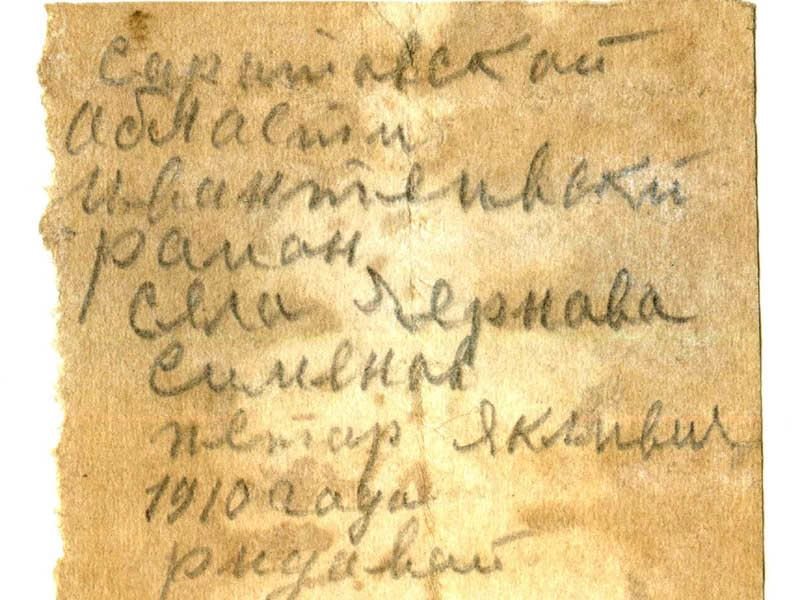 саратовской
абласти
ивантеивский
раион
села Чернава
сименов
петар Якливич
1910 года
ридавай